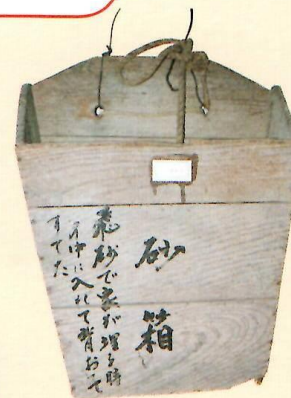 砂箱
飛砂で家が埋る時
この中に入れて背おって
すてた